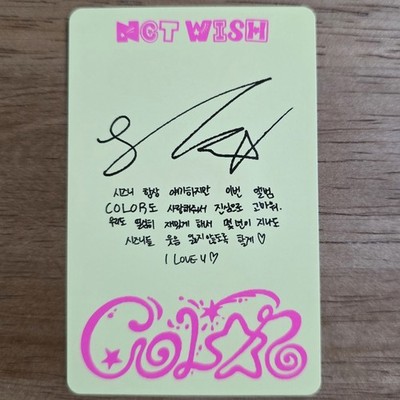 NCT WISH
시즈니 항상 얘기하지만 이번 앨범
COLOR도 사랑해줘서 진심으로 고마워.
우리도 열심히 재밌게 해서 몇 번이 지나도
시즈니들 웃음 잃지 않도록 할게 ♡
I LOVE U ♡
COLOR